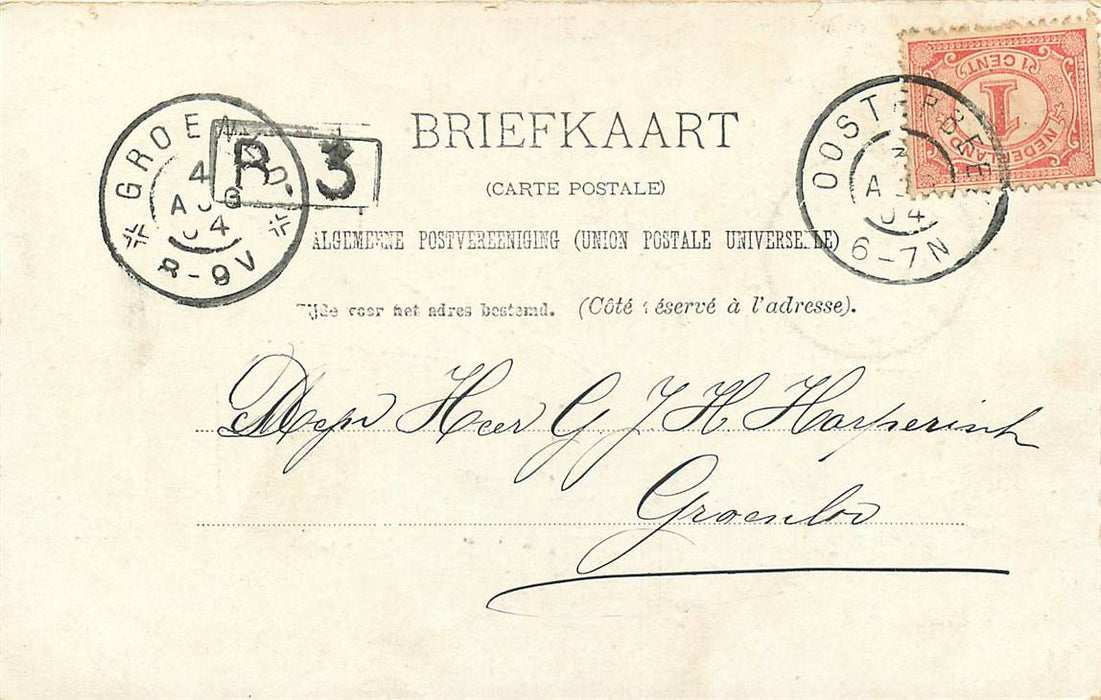 1 CENT
1
NEDERLAND
OOSTERBEEK
3
AUG
04
6-7N
GROENLO.
4
AUG
04
8-9V
R. 3
BRIEFKAART
(CARTE POSTALE)
ALGEMEENE POSTVEREENIGING (UNION POSTALE UNIVERSELLE)
Zijde voor het adres bestemd. (Côté réservé à l'adresse).
Heer G J H Harperink
Groenlo